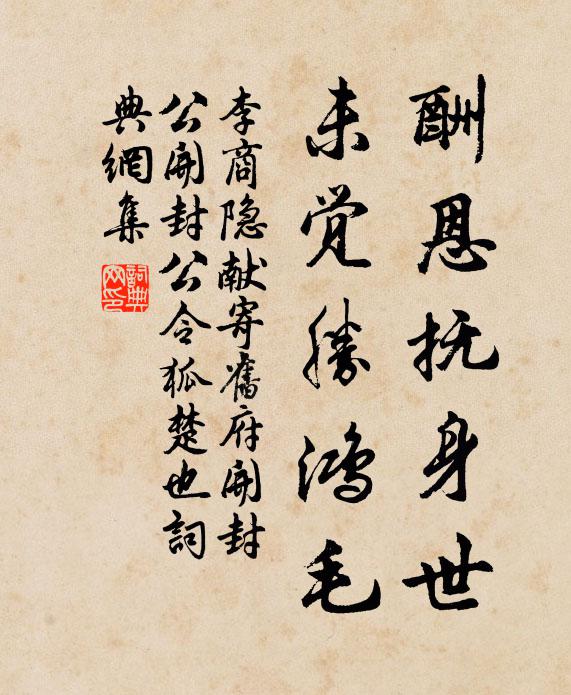 酬恩抚身世
未觉胜鸿毛
李商隐献寄舊府開封
公開封公令狐楚也詞
典網集
詞典
网印